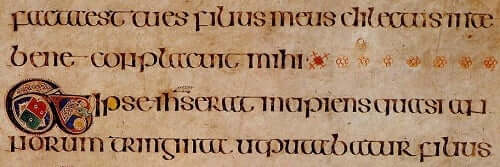 facta est tu es filius meus dilectus in te
bene conplacuit mihi
Et ipse ihs erat incipiens quasi an
norum tringinta ut putabatur filius